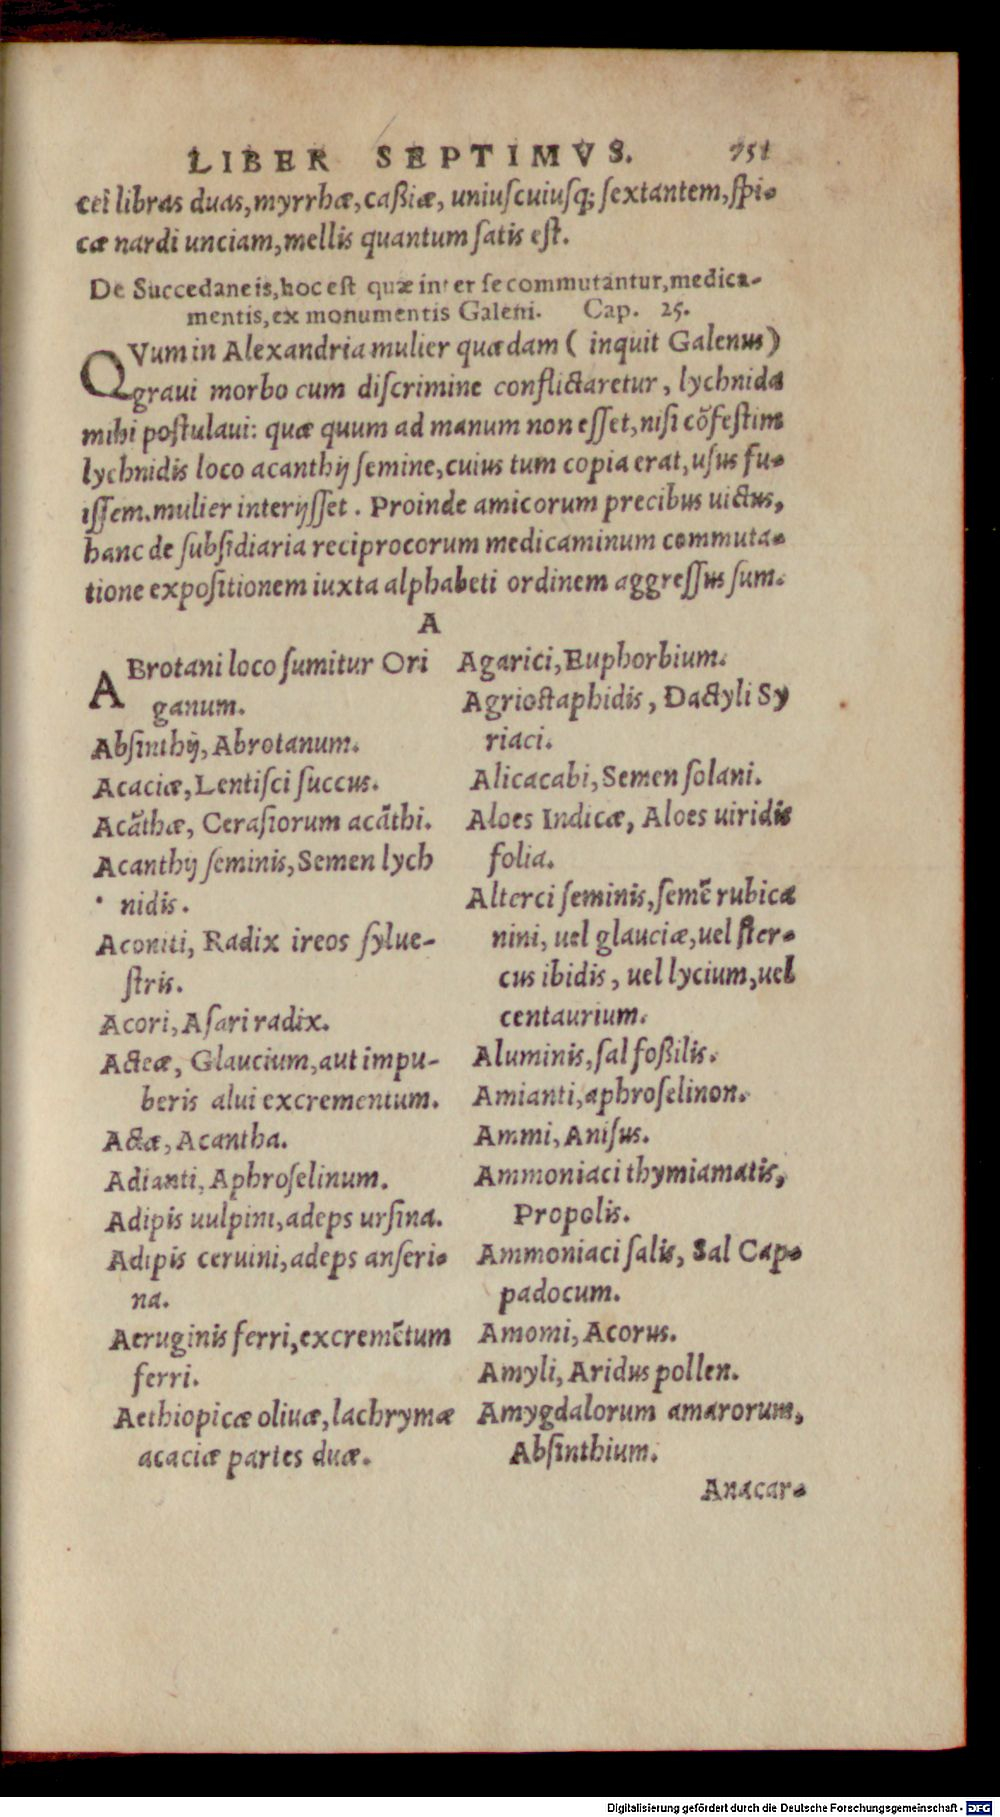 LIBER SEPTIMVS. 751
cei libras duas, myrrhæ, caßiæ, uniuſcuiuſq; ſextantem, ſpi-
cæ nardi unciam, mellis quantum ſatis eſt.
De Succedaneis, hoc eſt quæ inter ſe commutantur, medica-
mentis, ex monumentis Galeni. Cap. 25.
QVum in Alexandria mulier quædam ( inquit Galenus )
graui morbo cum diſcrimine conflictaretur, lychnida
mihi poſtulaui: quæ quum ad manum non eſſet, niſi cõfeſtim
lychnidis loco acanthij ſemine, cuius tum copia erat, uſus fu-
iſſem. mulier interijſſet. Proinde amicorum precibus uictus,
hanc de ſubſidiaria reciprocorum medicaminum commuta-
tione expoſitionem iuxta alphabeti ordinem aggreſſus ſum.
A
ABrotani loco ſumitur Ori
ganum.
Abſinthij, Abrotanum.
Acaciæ, Lentiſci ſuccus.
Acãthæ, Ceraſiorum acãthi.
Acanthij ſeminis, Semen lych
nidis.
Aconiti, Radix ireos ſylue-
ſtris.
Acori, Aſari radix.
Acteæ, Glaucium, aut impu-
beris alui excrementum.
Actæ, Acantha.
Adianti, Aphroſelinum.
Adipis uulpini, adeps urſina.
Adipis ceruini, adeps anſeri-
na.
Aeruginis ferri, excremẽtum
ferri.
Aethiopicæ oliuæ, lachrymæ
acaciæ partes duæ.
Agarici, Euphorbium.
Agrioſtaphidis, Dactyli Sy
riaci.
Alicacabi, Semen ſolani.
Aloes Indicæ, Aloes uiridis
folia.
Alterci ſeminis, ſemẽ rubicæ
nini, uel glauciæ, uel ſter-
cus ibidis, uel lycium, uel
centaurium.
Aluminis, ſal foßilis.
Amianti, aphroſelinon.
Ammi, Aniſus.
Ammoniaci thymiamatis,
Propolis.
Ammoniaci ſalis, Sal Cap-
padocum.
Amomi, Acorus.
Amyli, Aridus pollen.
Amygdalorum amarorum,
Abſinthium.
Anacar-
Digitalisierung gefördert durch die Deutsche Forschungsgemeinschaft - DFG